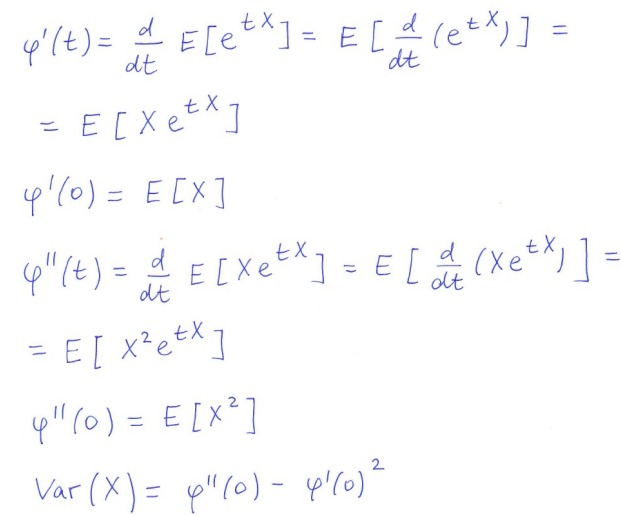 φ'(t) = d/dt E[e^{tX}] = E[d/dt (e^{tX})] =
= E[Xe^{tX}]
φ'(0) = E[X]
φ''(t) = d/dt E[Xe^{tX}] = E[d/dt (Xe^{tX})] =
= E[X²e^{tX}]
φ''(0) = E[X²]
Var(X) = φ''(0) - φ'(0)²